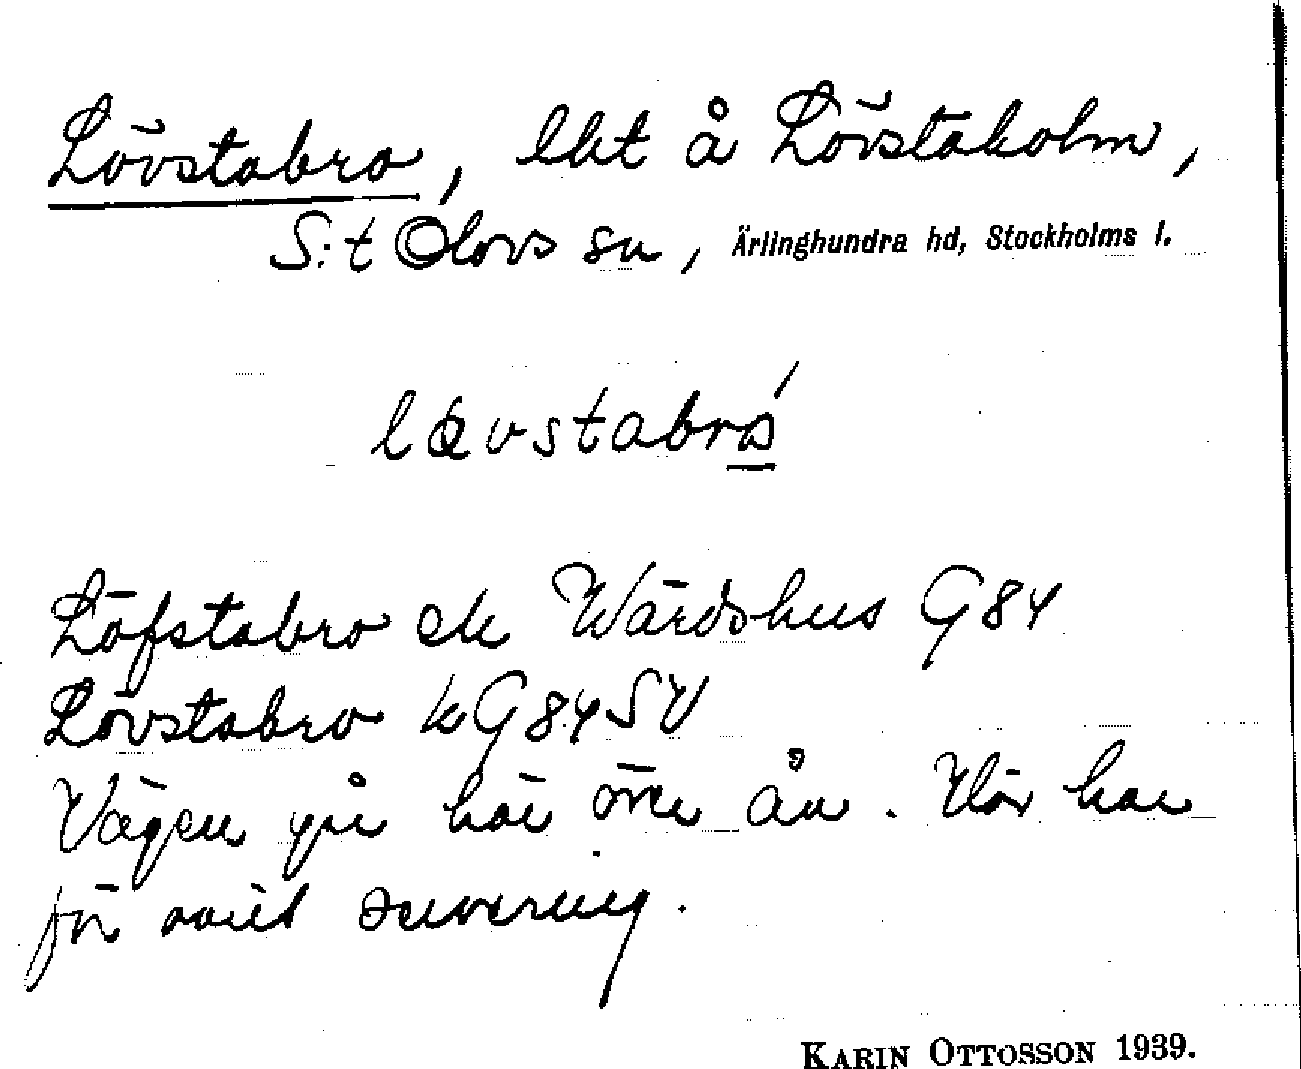 Lövstabro, lht å Lövstaholm,
S:t Olovs sn, Ärlinghundra hd, Stockholms l.
lœvstabró
Löfstabro ek Wärdshus G84
Lövstabro kG84SV
Vägen går här över ån. Här har
för varit servering.
KARIN OTTOSSON 1939.